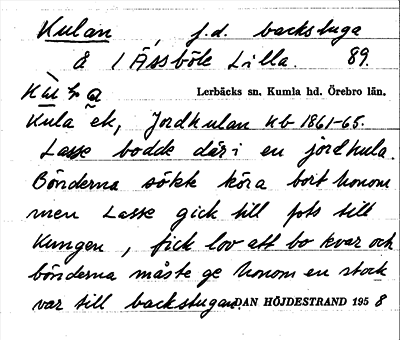 Kulan, f.d. backstuga
å 1 Ässböle Lilla. 89.
Lerbäcks sn. Kumla hd. Örebro län.
Kula ek, Jordkulan Kb 1861-65.
Lasse bodde där i en jordkula.
Bönderna sökte köra bort honom
men Lasse gick till fots till
Kungen, fick lov att bo kvar och
bönderna måste ge honom en stock
var till backstugan. DAN HÖJDESTRAND 1958